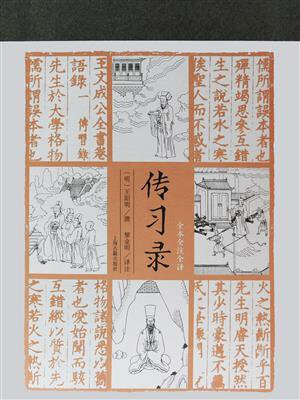 儒所謂誤本者也
殫精竭思參互錯
生之說若水之寒
俟聖人而不惑者
王文成公全書卷
語錄一 傳習錄
先生於大學格物
儒所謂誤本者也
传习录
全本全注全译
［明］王阳明／撰 黎业明／译注
上海古籍出版社
火之熱斷斷
先生明睿天授然
其少時豪邁不
格物諸說悉以
愛始聞而駭
互錯縱以質於先
之寒若火之熱斷